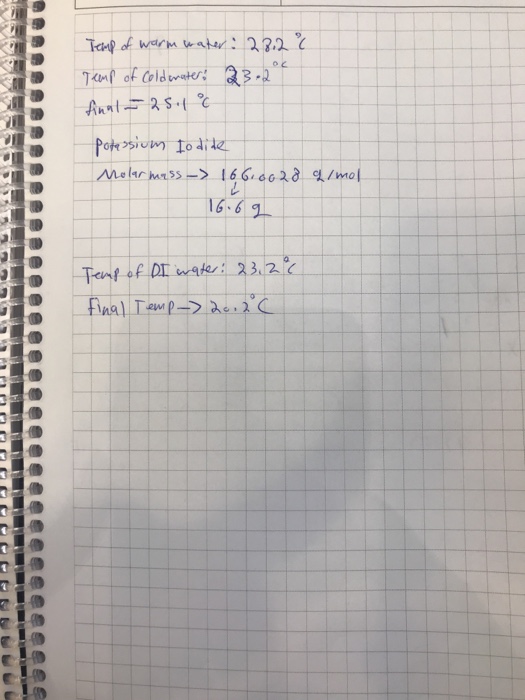 Temp of warm water: 28.2 °C
Temp of Cold water: 23.2 °C
final = 25.1 °C
Potassium Iodide
Molar mass -> 166.0028 g/mol
↓
16.6 g
Temp of DI water: 23.2°C
Final Temp -> 20.2°C